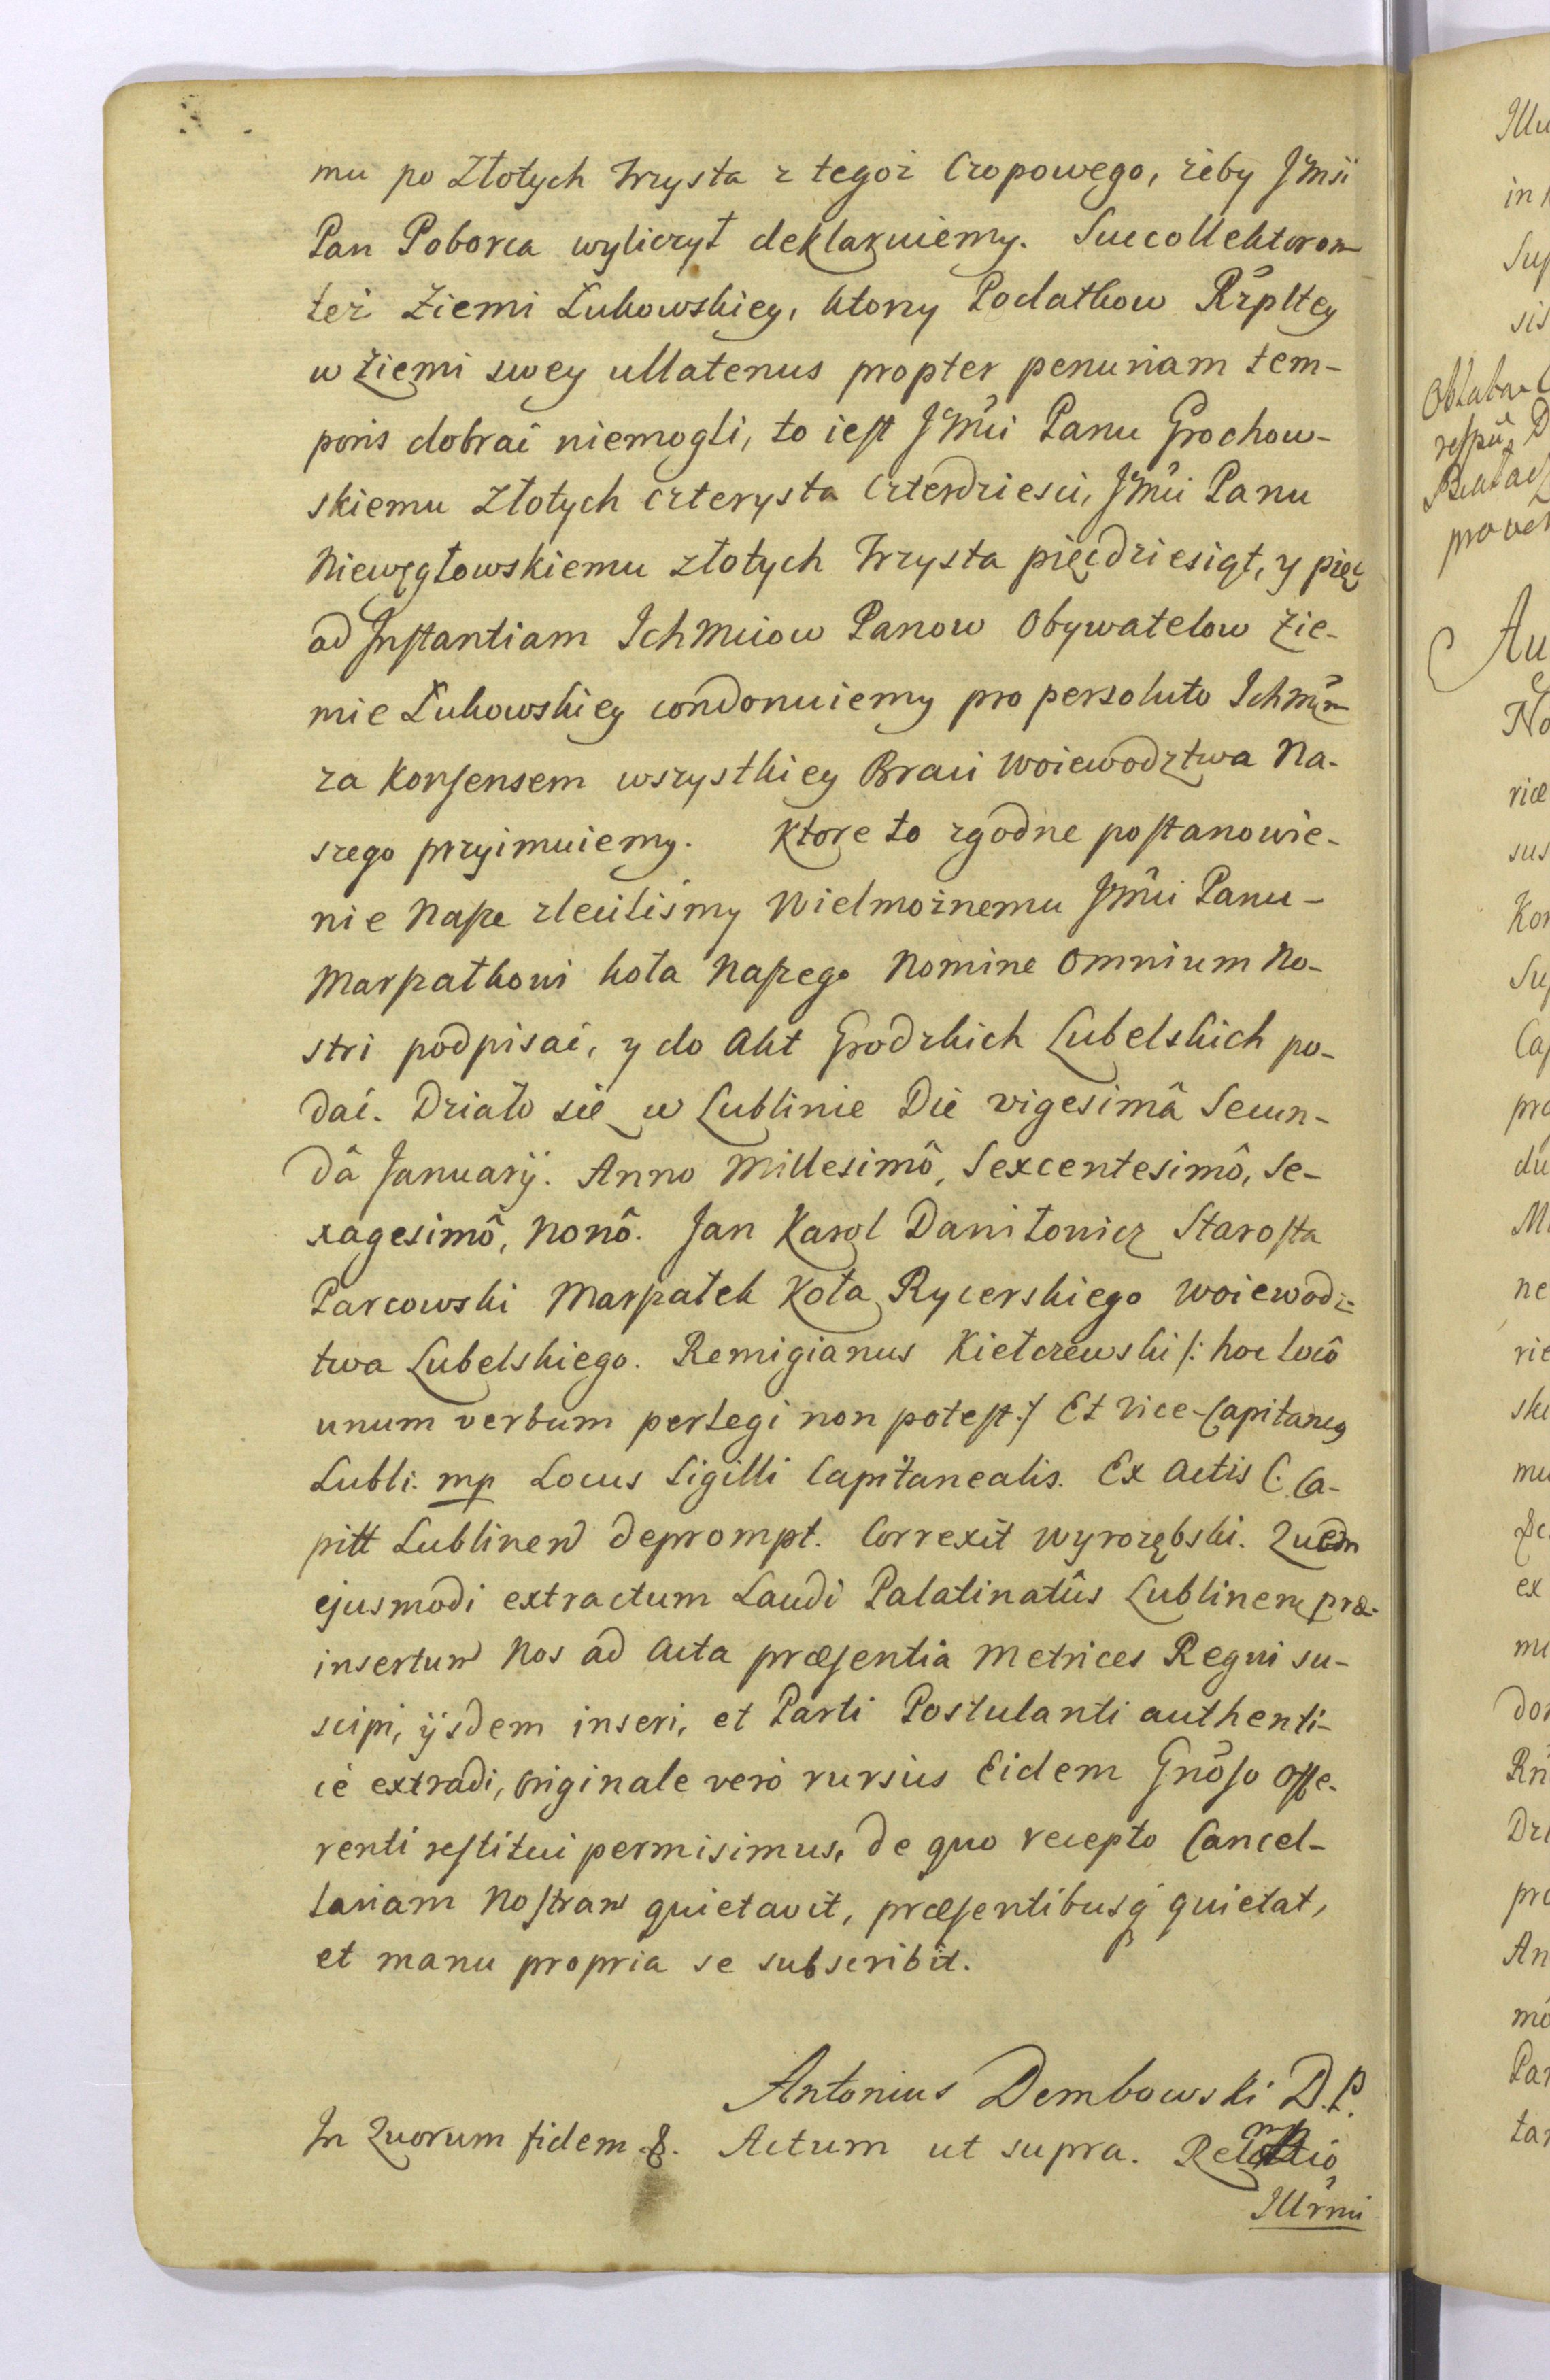 mu po Złotych Trzysta z tegoż Czopowego, żeby Jmśi
Pan Poborca wyliczył deklaruiemy. Succollektorom
też Ziemi Łukowskiey, ktorzy Podatkow Rzpltey
w Ziemi swey ullatenus propter penuriam tem-
poris dobrać niemogli, to iest Jmci Panu Grochow-
skiemu Złotych czterysta Czterdziesci, Jmci Panu
Niewęgłowskiemu złotych Trzysta pięcdziesiąt, y pięc
ad Instantiam Ichmciow Panow Obywatelow Zie-
mie Łukowskiey condonuiemy pro persoluto Ichmćm
za Konsensem wszystkiey Braci Woiewodztwa Na-
szego przyimuiemy. Ktore to zgodne postanowie-
nie Nasze zleciliśmy Wielmożnemu Jmci Panu-
Marszałkowi koła Naszego Nomine Omnium No-
stri podpisać, y do Akt Grodzkich Lubelskich po-
dać. Działo się w Lublinie Die vigesimâ Secun-
dâ Januarij. Anno Millesimô, Sexcentesimô, Se-
xagesimô, Nonô. Jan Karol Daniłowicz Starosta
Parcowski Marszałek Koła Rycerskiego Woiewodz-
twa Lubelskiego. Remigianus Kiełczewski /: hoc locô
unum verbum perlegi non potest :/ Et Vice-Capitaneus
Lubli. mp Locus Sigilli Capitanealis. Ex Actis C. Ca-
pitt Lublinen deprompt. Correxit Wyrozębski. Quodn
ejusmodi extractum Laudi Palatinatûs Lublinen præ-
insertum Nos ad Acta præsentia Metrices Regni su-
scipi, ijsdem inseri, et Parti Postulanti authenti-
cè extradi, originale verò rursùs Eidem Gnõso Offe-
renti restitui permisimus, de quo recepto Cancel-
lariam Nostram quietavit, præsentibusq́ quietat,
et manu propria se subscribit.
Antonius Dembowski D.P.
mp
In Quorum fidem &. Actum ut supra. Relatio
Illrmi